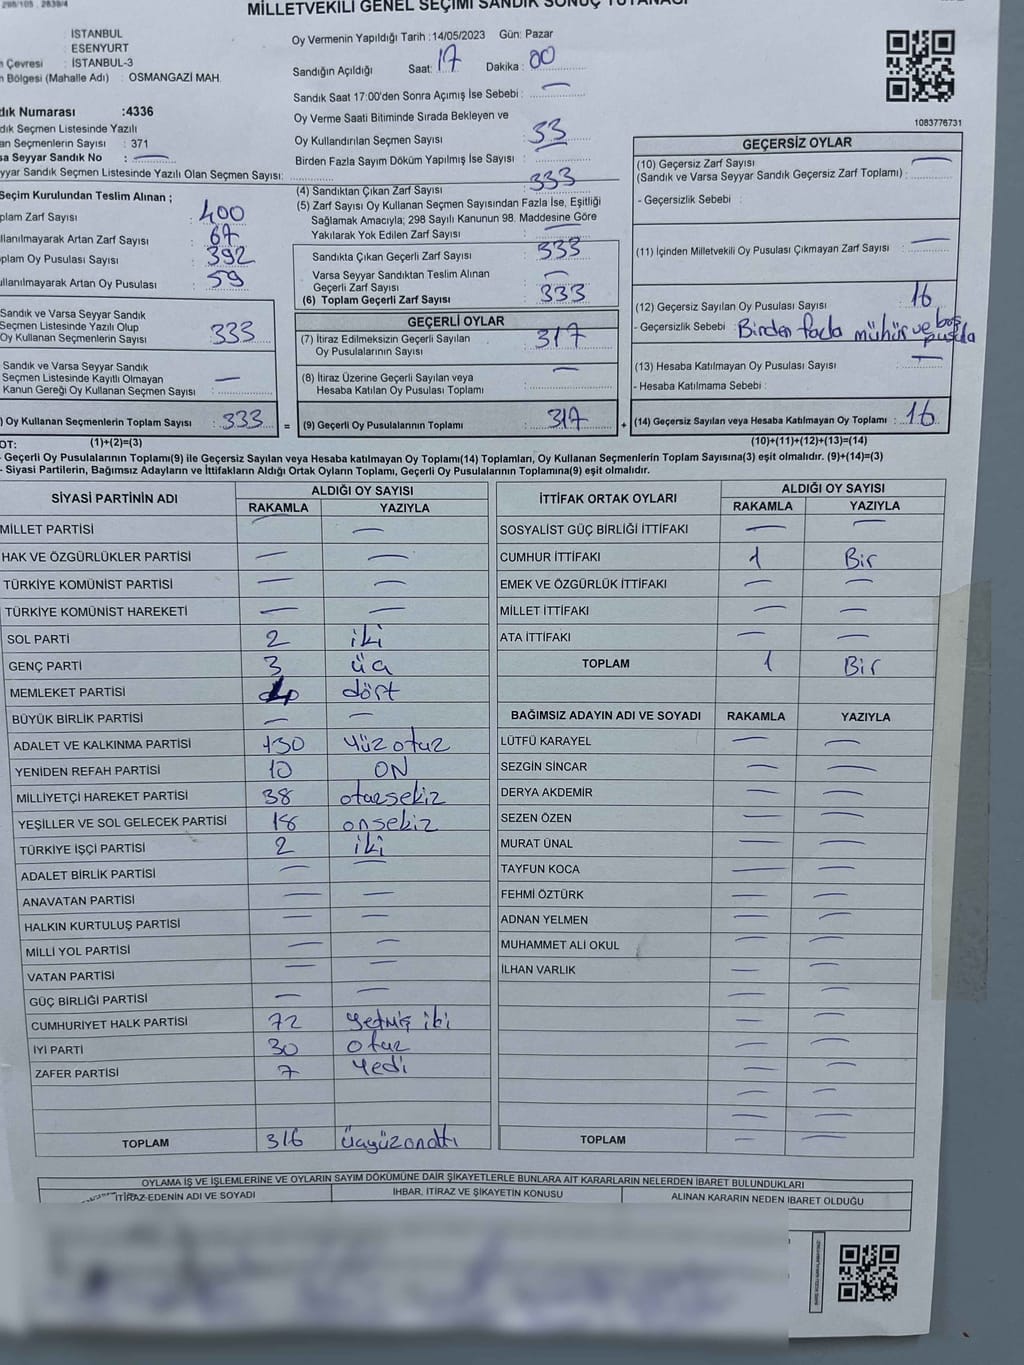 298/105 . 2839/4
MİLLETVEKİLİ GENEL SEÇİMİ SANDIK SONUÇ TUTANAĞI
İSTANBUL
ESENYURT
Çevresi : İSTANBUL-3
Bölgesi (Mahalle Adı) : OSMANGAZİ MAH.
Oy Vermenin Yapıldığı Tarih :14/05/2023 Gün: Pazar
Sandığın Açıldığı Saat: 17 Dakika : 00
Sandık Saat 17:00'den Sonra Açımış İse Sebebi : —
Oy Verme Saati Bitiminde Sırada Bekleyen ve
Oy Kullandırılan Seçmen Sayısı : 33
Birden Fazla Sayım Döküm Yapılmış İse Sayısı :
1083776731
dık Numarası :4336
dık Seçmen Listesinde Yazılı
an Seçmenlerin Sayısı : 371
sa Seyyar Sandık No : —
yyar Sandık Seçmen Listesinde Yazılı Olan Seçmen Sayısı:
Seçim Kurulundan Teslim Alınan ;
plam Zarf Sayısı : 400
llanılmayarak Artan Zarf Sayısı : 67
plam Oy Pusulası Sayısı : 392
llanılmayarak Artan Oy Pusulası : 59
Sandık ve Varsa Seyyar Sandık
Seçmen Listesinde Yazılı Olup
Oy Kullanan Seçmenlerin Sayısı : 333
Sandık ve Varsa Seyyar Sandık
Seçmen Listesinde Kayıtlı Olmayan
Kanun Gereği Oy Kullanan Seçmen Sayısı : —
) Oy Kullanan Seçmenlerin Toplam Sayısı : 333 =
(1)+(2)=(3)
(4) Sandıktan Çıkan Zarf Sayısı : 333
(5) Zarf Sayısı Oy Kullanan Seçmen Sayısından Fazla İse, Eşitliği
Sağlamak Amacıyla; 298 Sayılı Kanunun 98. Maddesine Göre
Yakılarak Yok Edilen Zarf Sayısı : —
Sandıkta Çıkan Geçerli Zarf Sayısı : 333
Varsa Seyyar Sandıktan Teslim Alınan
Geçerli Zarf Sayısı : —
(6) Toplam Geçerli Zarf Sayısı : 333
GEÇERLİ OYLAR
(7) İtiraz Edilmeksizin Geçerli Sayılan
Oy Pusulalarının Sayısı : 317
(8) İtiraz Üzerine Geçerli Sayılan veya
Hesaba Katılan Oy Pusulası Toplamı : —
(9) Geçerli Oy Pusulalarının Toplamı : 317 +
GEÇERSİZ OYLAR
(10) Geçersiz Zarf Sayısı —
(Sandık ve Varsa Seyyar Sandık Geçersiz Zarf Toplamı) :
- Geçersizlik Sebebi :
(11) İçinden Milletvekili Oy Pusulası Çıkmayan Zarf Sayısı : —
(12) Geçersiz Sayılan Oy Pusulası Sayısı : 16
- Geçersizlik Sebebi : Birden fazla mühür ve boş
pusula
(13) Hesaba Katılmayan Oy Pusulası Sayısı : —
- Hesaba Katılmama Sebebi :
(14) Geçersiz Sayılan veya Hesaba Katılmayan Oy Toplamı : 16
(10)+(11)+(12)+(13)=(14)
OT:
- Geçerli Oy Pusulalarının Toplamı(9) ile Geçersiz Sayılan veya Hesaba katılmayan Oy Toplamı(14) Toplamları, Oy Kullanan Seçmenlerin Toplam Sayısına(3) eşit olmalıdır. (9)+(14)=(3)
- Siyasi Partilerin, Bağımsız Adayların ve İttifakların Aldığı Ortak Oyların Toplamı, Geçerli Oy Pusulalarının Toplamına(9) eşit olmalıdır.
SİYASİ PARTİNİN ADI ALDIĞI OY SAYISI
RAKAMLA YAZIYLA
MİLLET PARTİSİ — —
HAK VE ÖZGÜRLÜKLER PARTİSİ — —
TÜRKİYE KOMÜNİST PARTİSİ — —
TÜRKİYE KOMÜNİST HAREKETİ — —
SOL PARTİ 2 iki
GENÇ PARTİ 3 üç
MEMLEKET PARTİSİ 4 dört
BÜYÜK BİRLİK PARTİSİ — —
ADALET VE KALKINMA PARTİSİ 130 Yüz otuz
YENİDEN REFAH PARTİSİ 10 ON
MİLLİYETÇİ HAREKET PARTİSİ 38 otuzsekiz
YEŞİLLER VE SOL GELECEK PARTİSİ 18 onsekiz
TÜRKİYE İŞÇİ PARTİSİ 2 iki
ADALET BİRLİK PARTİSİ — —
ANAVATAN PARTİSİ — —
HALKIN KURTULUŞ PARTİSİ — —
MİLLİ YOL PARTİSİ — —
VATAN PARTİSİ — —
GÜÇ BİRLİĞİ PARTİSİ — —
CUMHURİYET HALK PARTİSİ 72 yetmiş iki
İYİ PARTİ 30 otuz
ZAFER PARTİSİ 7 Yedi
TOPLAM 316 üçyüzonaltı
İTTİFAK ORTAK OYLARI ALDIĞI OY SAYISI
RAKAMLA YAZIYLA
SOSYALİST GÜÇ BİRLİĞİ İTTİFAKI — —
CUMHUR İTTİFAKI 1 Bir
EMEK VE ÖZGÜRLÜK İTTİFAKI — —
MİLLET İTTİFAKI — —
ATA İTTİFAKI — —
TOPLAM 1 Bir
BAĞIMSIZ ADAYIN ADI VE SOYADI RAKAMLA YAZIYLA
LÜTFÜ KARAYEL — —
SEZGİN SİNCAR — —
DERYA AKDEMİR — —
SEZEN ÖZEN — —
MURAT ÜNAL — —
TAYFUN KOCA — —
FEHMİ ÖZTÜRK — —
ADNAN YELMEN — —
MUHAMMET ALİ OKUL — —
İLHAN VARLIK — —
TOPLAM — —
OYLAMA İŞ VE İŞLEMLERİNE VE OYLARIN SAYIM DÖKÜMÜNE DAİR ŞİKAYETLERLE BUNLARA AİT KARARLARIN NELERDEN İBARET BULUNDUKLARI
İTİRAZ EDENİN ADI VE SOYADI İHBAR, İTİRAZ VE ŞİKAYETİN KONUSU ALINAN KARARIN NEDEN İBARET OLDUĞU